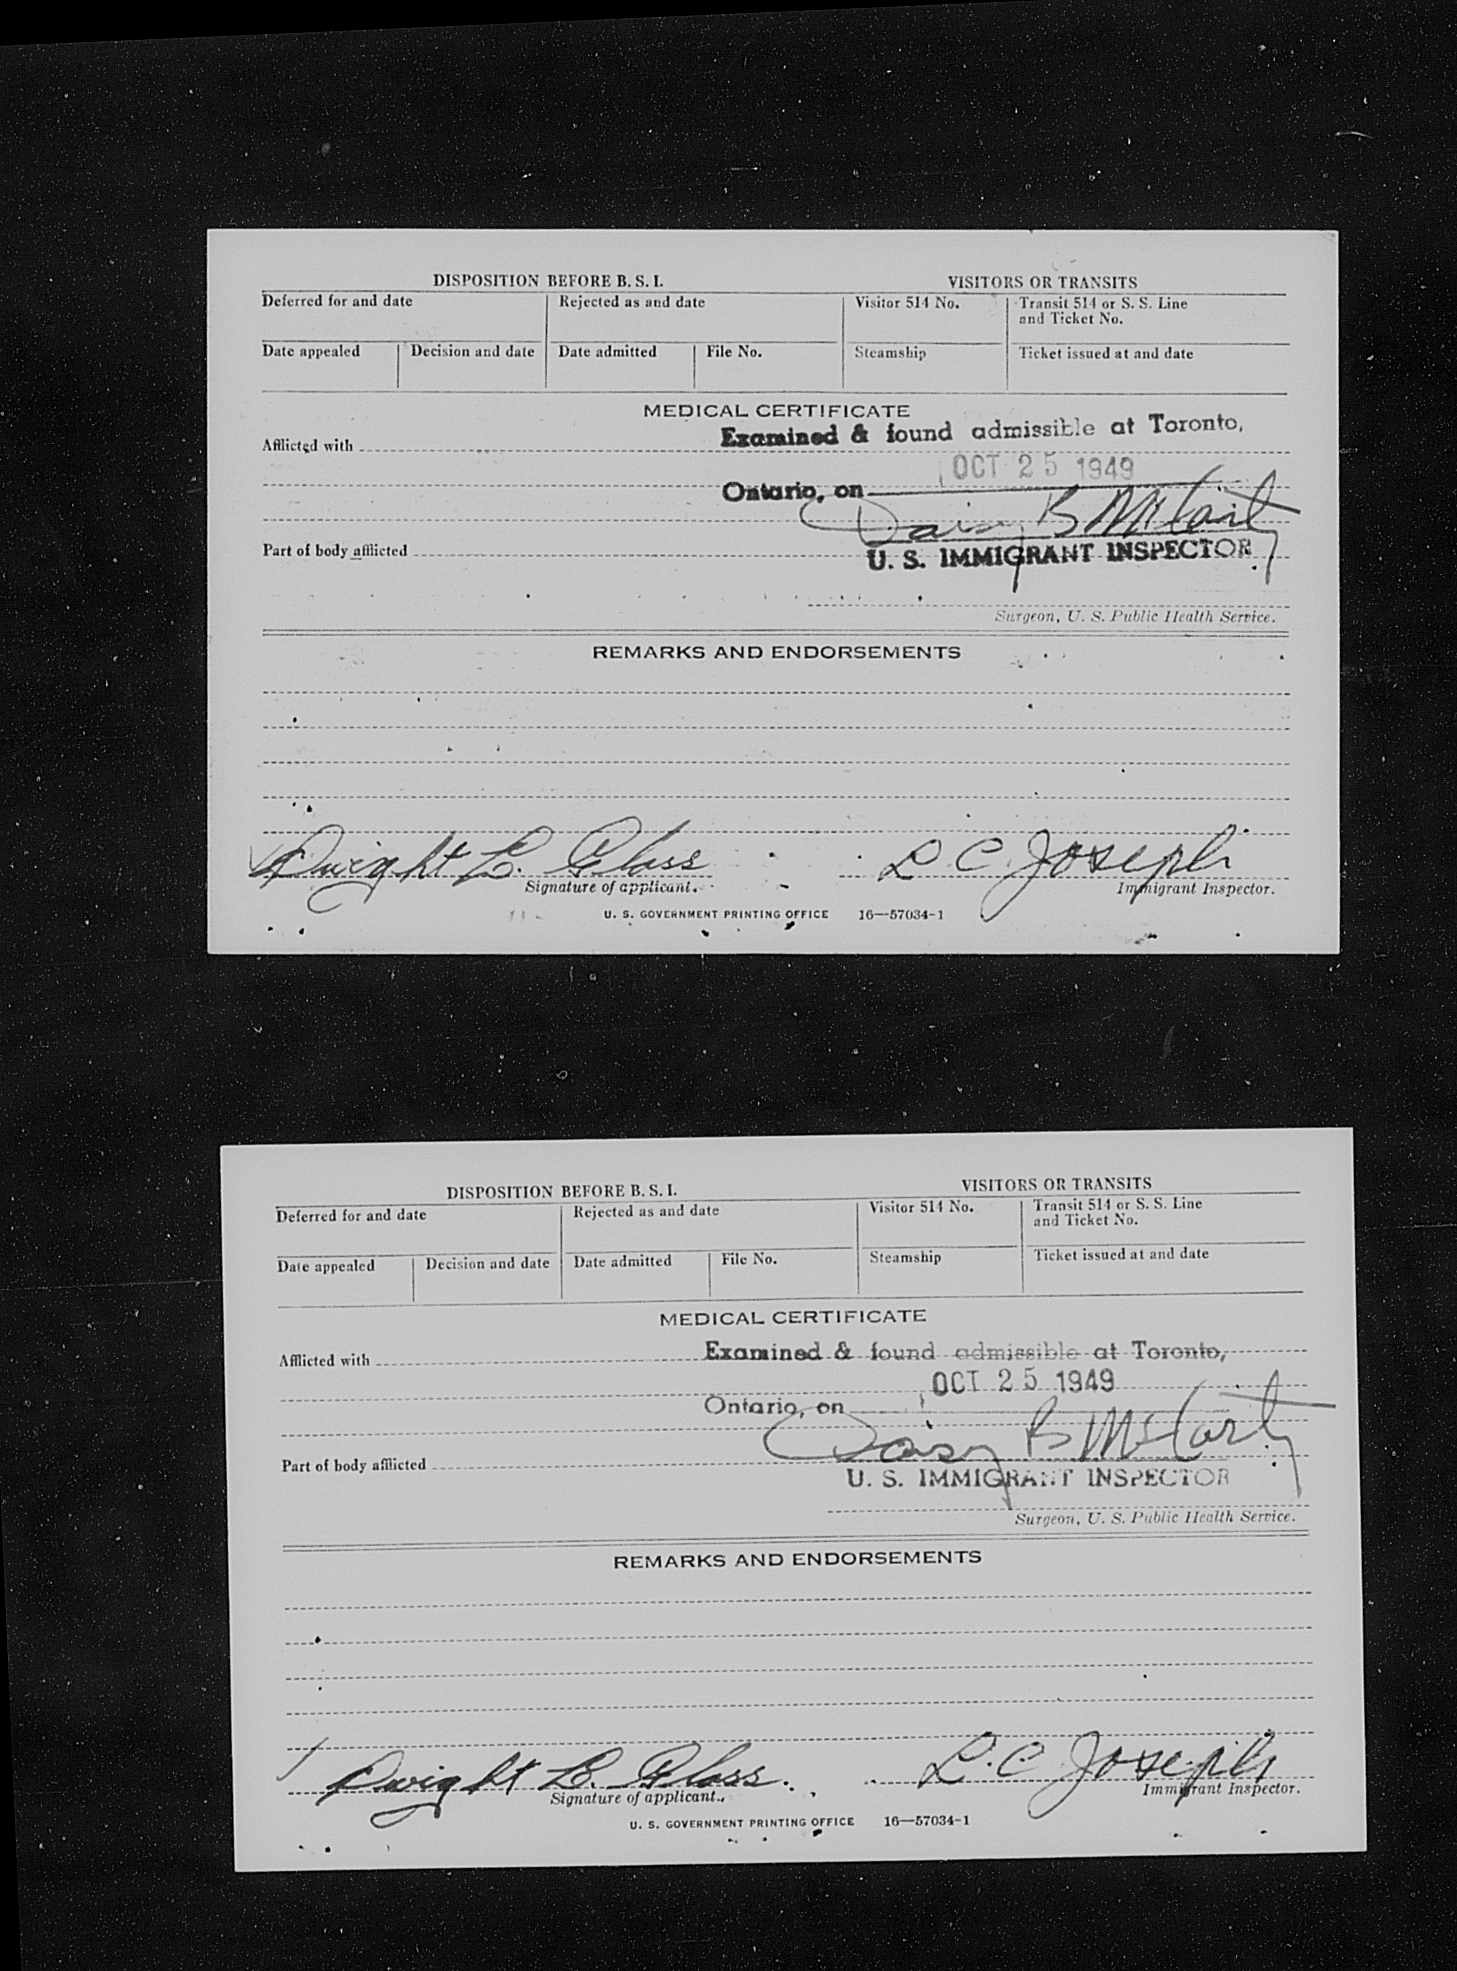 DISPOSITION BEFORE B. S. I. VISITORS OR TRANSITS
Deferred for and date Rejected as and date Visitor 514 No. Transit 514 or S. S. Line
and Ticket No.
Date appealed Decision and date Date admitted File No. Steamship Ticket issued at and date
MEDICAL CERTIFICATE
Examined & found admissible at Toronto,
Afflicted with
OCT 25 1949
Ontario, on
Daisy B McCarty
Part of body afflicted
U. S. IMMIGRANT INSPECTOR
Surgeon, U. S. Public Health Service.
REMARKS AND ENDORSEMENTS
Dwight L. Glass L C Joseph
Signature of applicant. Immigrant Inspector.
U. S. GOVERNMENT PRINTING OFFICE 16—57034-1
DISPOSITION BEFORE B. S. I. VISITORS OR TRANSITS
Deferred for and date Rejected as and date Visitor 514 No. Transit 514 or S. S. Line
and Ticket No.
Date appealed Decision and date Date admitted File No. Steamship Ticket issued at and date
MEDICAL CERTIFICATE
Examined & found admissible at Toronto,
Afflicted with
OCT 25 1949
Ontario, on
Daisy B McCarty
Part of body afflicted
U. S. IMMIGRANT INSPECTOR
Surgeon, U. S. Public Health Service.
REMARKS AND ENDORSEMENTS
Dwight L. Glass. L. C Joseph
Signature of applicant. Immigrant Inspector.
U. S. GOVERNMENT PRINTING OFFICE 16—57034-1